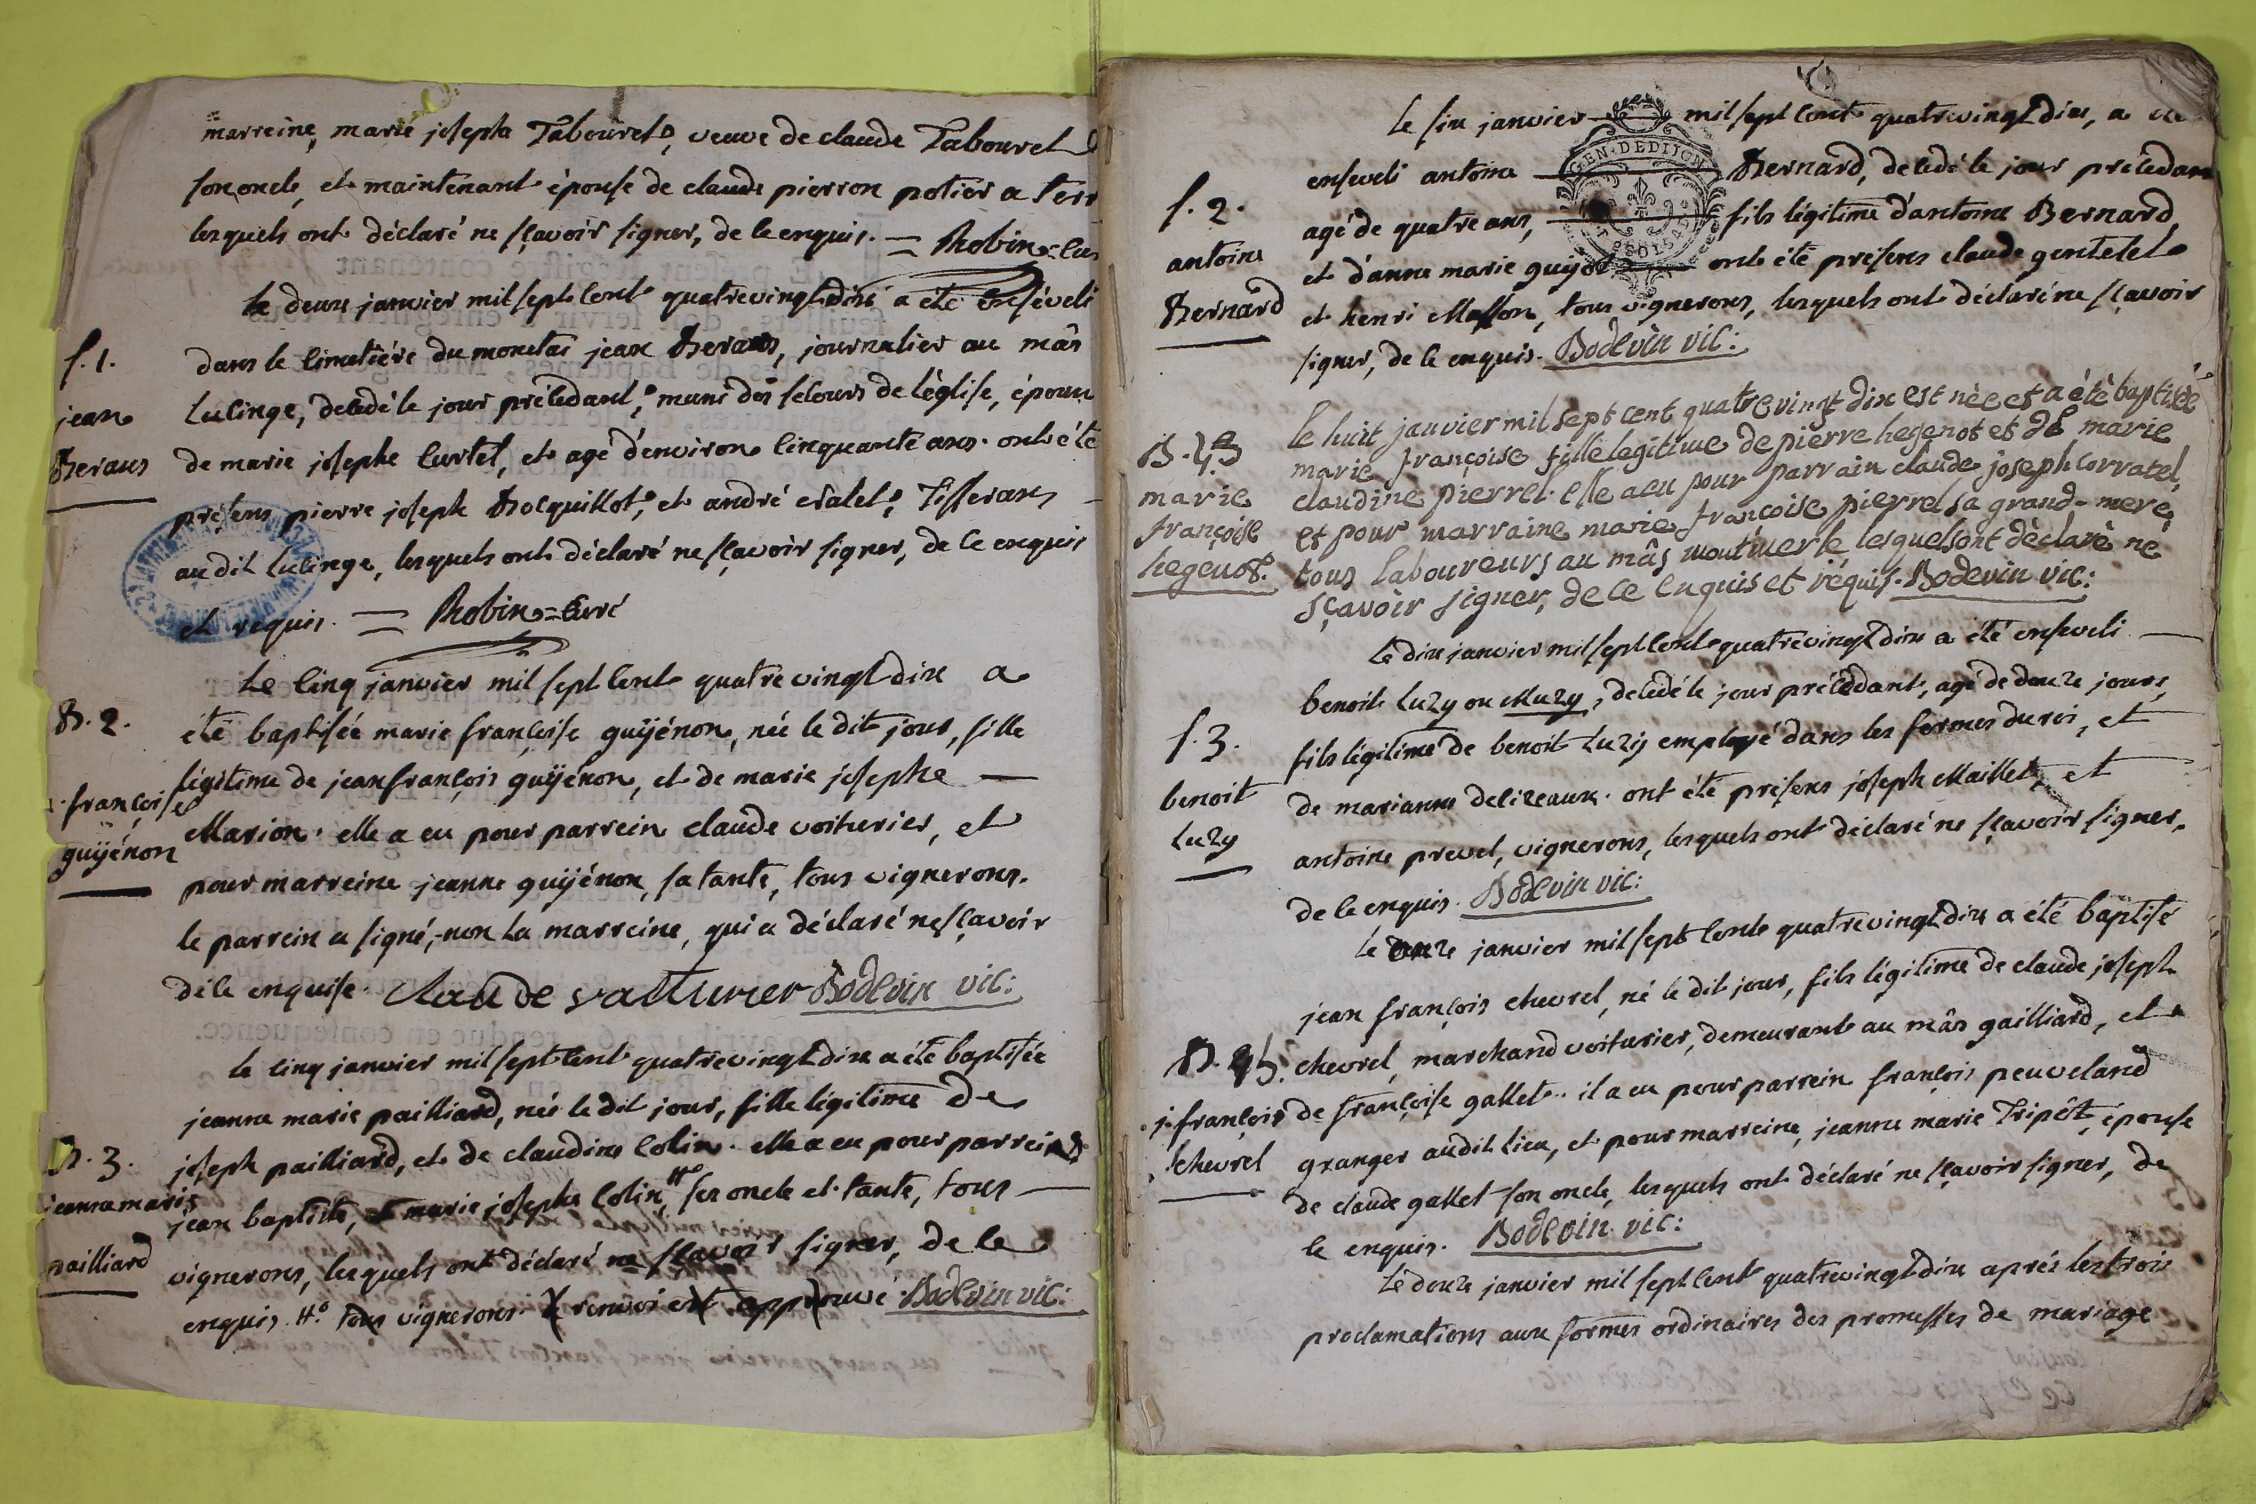 marreine, marie josepha Tabouret, veuve de claude Tabouret
son oncle, et maintenant épouse de claude pierron potier a terr
lesquels ont déclaré ne sçavoir signer, de ce enquis. = Robin = cur
le deux janvier mil sept cent quatrevingt dix a été enséveli
f. 1.
jean
Beraus
dans le cimetière du monetai jean Beraus, journalier au mâs
Lulinge, decedé le jour précedant, muni des secours de l'église, époux
de marie josephe Curtel, et agé d'environ cinquante ans. ont été
présens pierre joseph Bocquillot, et andré Tisserans
au dit Lulinge, lesquels ont déclaré ne sçavoir signer, de ce enquis
et requis. = Robin = Curé
Le cinq janvier mil sept cent quatrevingt dix a
B. 2.
françoise
guyénon
été baptisée marie françoise guyénon, née le dit jour, fille
légitime de jean françois guyénon, et de marie josephe
Marion. elle a eu pour parrein claude voiturier, et
pour marreine jeanne guyénon, sa tante, tous vignerons.
le parrein a signé, non la marreine, qui a déclaré ne sçavoir
de ce enquise. claude vaiturier Bodevin vic:
le cinq janvier mil sept cent quatrevingt dix a été baptisée
B. 3.
jeanne marie
pailliard
jeanne marie pailliard, née le dit jour, fille légitime de
joseph pailliard, et de claudine Colin. elle a eu pour parrein
jean baptiste, et marie josephe Colin # ses oncle et tante, tous
vignerons, lesquels ont déclaré ne sçavoir signer, de ce
enquis. # tous vignerons. renvoi est approuvé. Bodevin vic:
le six janvier mil sept cent quatrevingt dix, a été
GEN. DE DIJON
f. 2.
antoine
Bernard
enseveli antoine Bernard, decedé le jour précedant
agé de quatre ans, fils légitime d'antoine Bernard,
et d'anne marie guyot ont été présens claude gentelet
et henri Masson, tous vignerons, lesquels ont déclaré ne sçavoir
signer, de ce enquis. Bodevin vic:
B. 4
marie
françoise
hegenot.
le huit janvier mil sept cent quatre vingt dix est née et a été baptisée
marie françoise fille legitime de pierre hegenot et de marie
claudine pierrel. elle a eu pour parrain claude joseph Corratel,
et pour marraine marie françoise pierrel sa grand-mere,
tous laboureurs au mâs montmerle lesquels ont déclaré ne
sçavoir signer, de ce enquis et réquis. Bodevin vic:
Le dix janvier mil sept cent quatrevingt dix a été enseveli
f. 3.
benoit
Luzy
benoit Luzy ou Muzy, decedé le jour précedant, agé de douze jours,
fils légitime de benoit Luzy employé dans les fermes du roi, et
de marianne delizeaux. ont été présens joseph Maillet, et
antoine prevel, vignerons, lesquels ont déclaré ne sçavoir signer,
de ce enquis. Bodevin vic:
Le onze janvier mil sept cent quatrevingt dix a été baptisé
B. 5.
j. françois
chevrel
jean françois chevrel, né le dit jour, fils légitime de claude joseph
chevrel, marchand voiturier, demeurant au mâs gailliard, et
de françoise gallet. il a eu pour parrein françois peuveland
granger audit lieu, et pour marreine, jeanne marie Tripôt, épouse
de claude gallet son oncle, lesquels ont déclaré ne sçavoir signer, de
ce enquis. Bodevin vic:
Le douze janvier mil sept cent quatrevingt dix aprés les trois
proclamations aux formes ordinaires des promesses de mariage